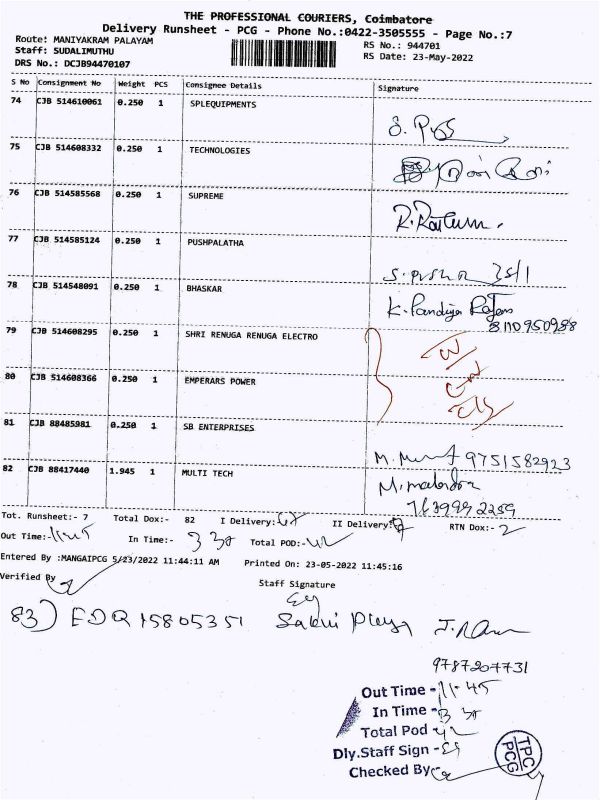 THE PROFESSIONAL COURIERS, Coimbatore
Delivery Runsheet - PCG - Phone No.:0422-3505555 - Page No.:7
Route: MANIYAKRAM PALAYAM
RS No.: 944701
Staff: SUDALIMUTHU
RS Date: 23-May-2022
DRS No.: DCJB94470107
S No Consignment No Weight PCS Consignee Details Signature
74 CJB 514610061 0.250 1 SPLEQUIPMENTS
75 CJB 514608332 0.250 1 TECHNOLOGIES
76 CJB 514585568 0.250 1 SUPREME
77 CJB 514585124 0.250 1 PUSHPALATHA
78 CJB 514548091 0.250 1 BHASKAR K. Pandiya Rajan
79 CJB 514608295 0.250 1 SHRI RENUGA RENUGA ELECTRO
80 CJB 514608366 0.250 1 EMPERARS POWER
81 CJB 88485981 0.250 1 SB ENTERPRISES 9751582923
82 CJB 88417440 1.945 1 MULTI TECH
Tot. Runsheet:- 7 Total Dox:- 82 I Delivery: II Delivery: RTN Dox:- 2
Out Time:- 11-45 In Time:- 3 30 Total POD:- 42
Entered By :MANGAIPCG 5/23/2022 11:44:11 AM Printed On: 23-05-2022 11:45:16
Verified By
Staff Signature
83) EDQ 15805351
9787207731
Out Time - 11-45
In Time - 3 30
Total Pod - 42
Dly.Staff Sign -
Checked By
TPC
PCG